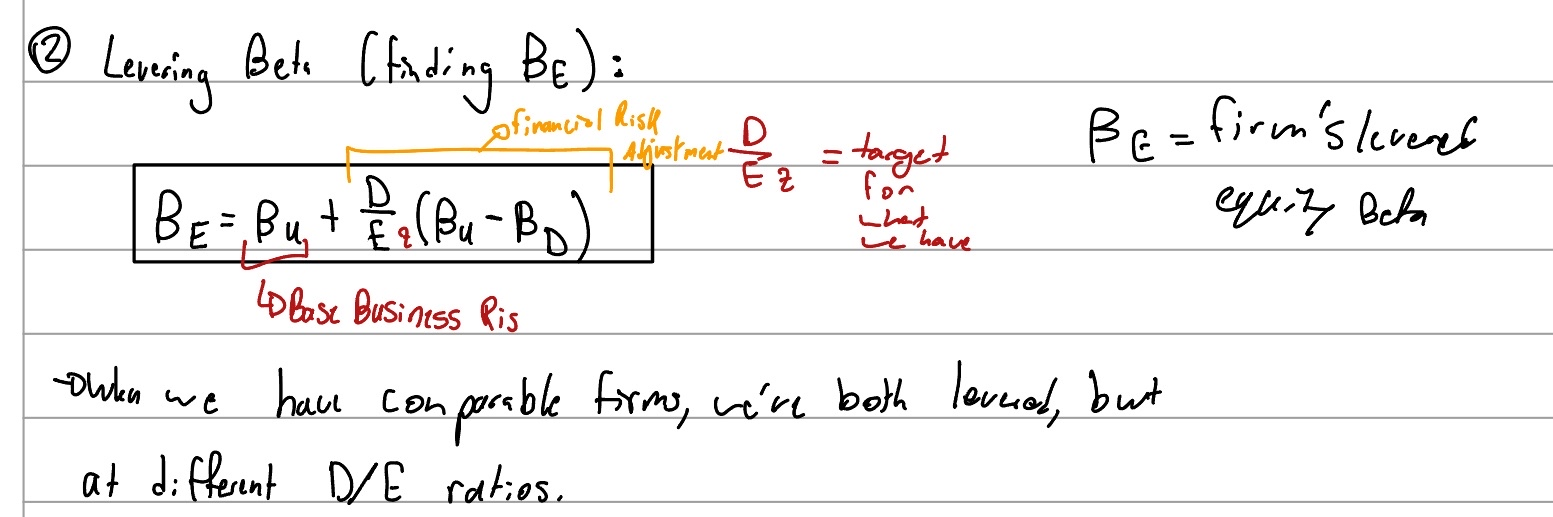 ② Levering Beta (finding BE):
financial Risk
Adjustment
D/E 2 = target
for
what
we have
BE = firm's levered
equity Beta
BE = Bu + D/E 2 (Bu - BD)
↳ Base Business Ris
→ when we have comparable firms, we're both levered, but
at different D/E ratios.